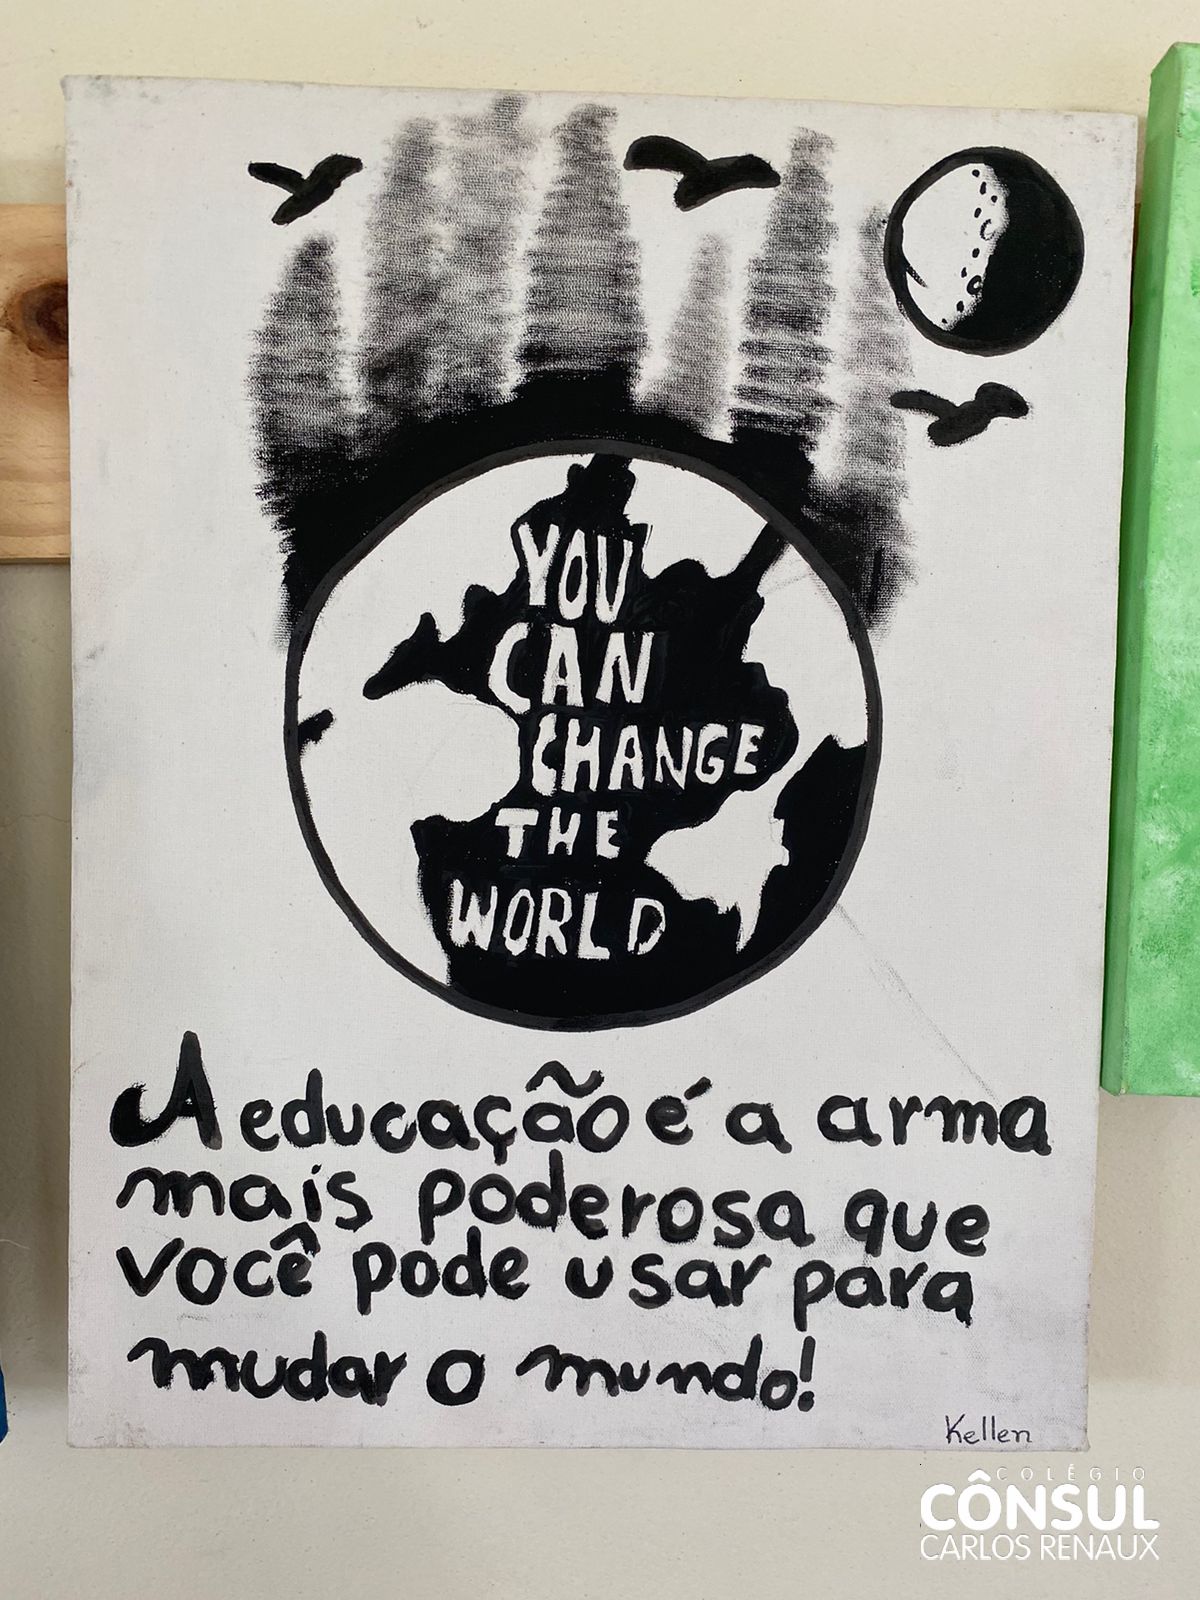 YOU
CAN
CHANGE
THE
WORLD
A educação é a arma
mais poderosa que
você pode usar para
mudar o mundo!
Kellen
COLÉGIO
CÔNSUL
CARLOS RENAUX